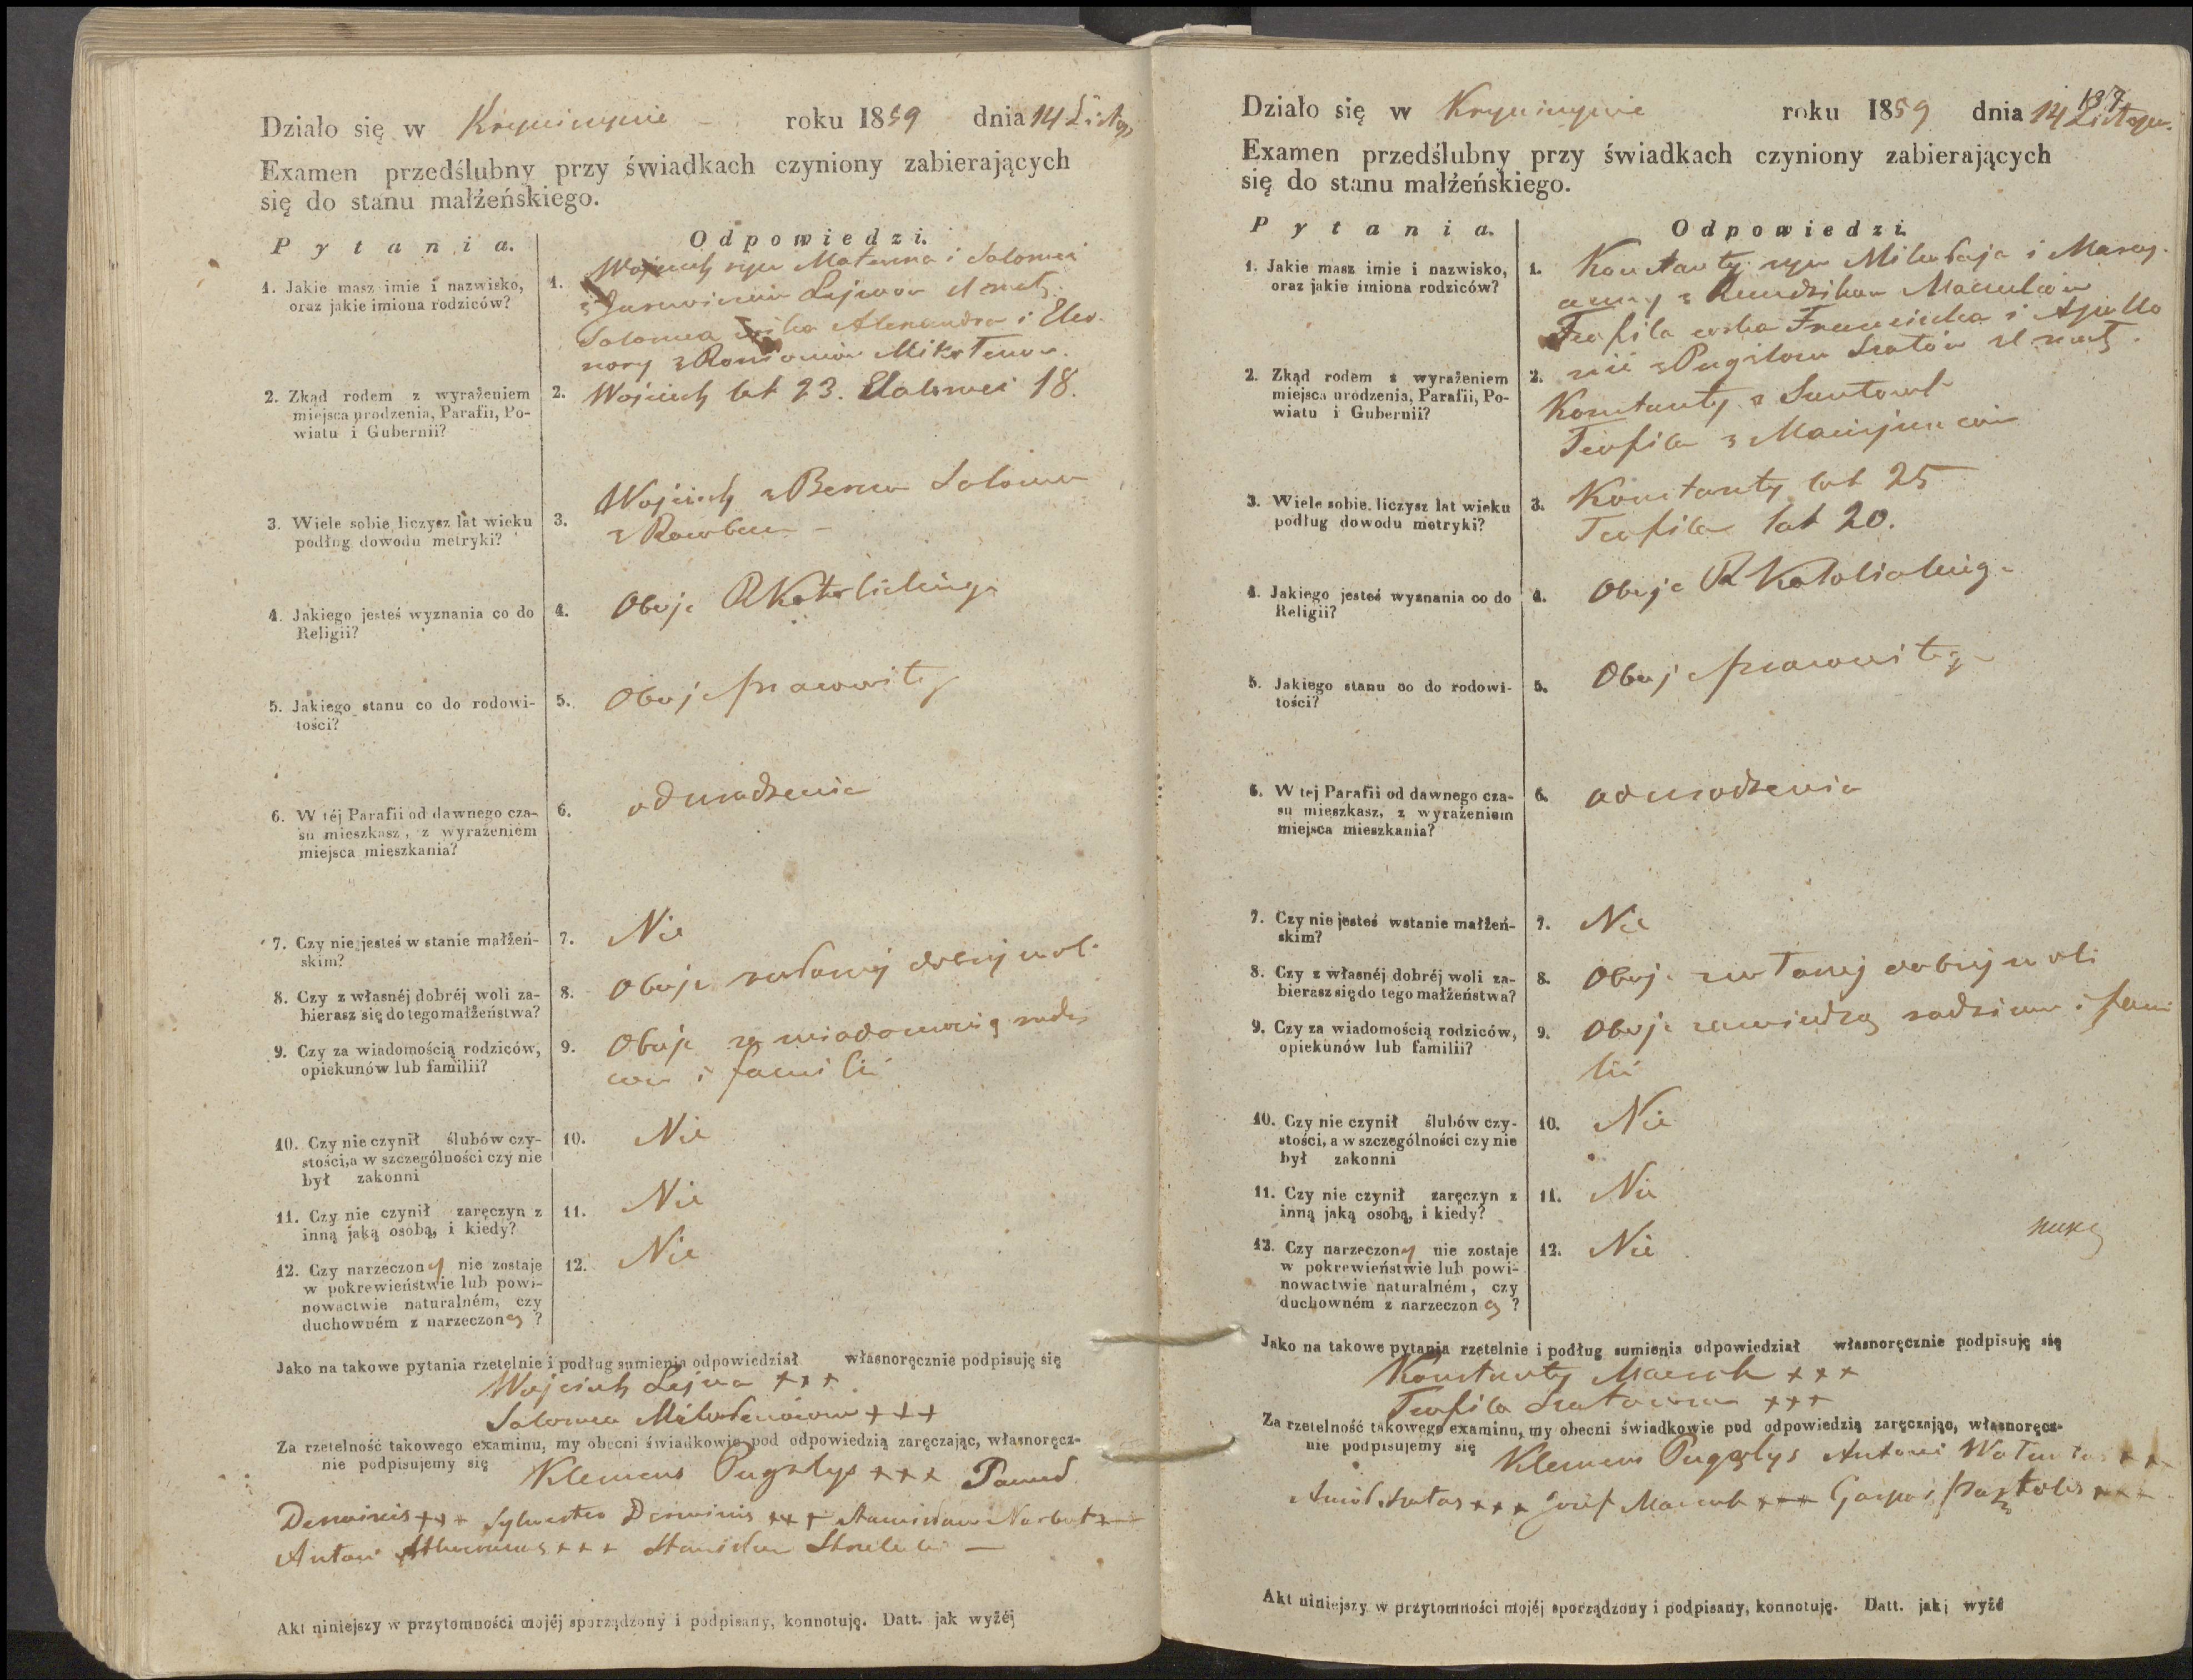 Działo się w roku 1859 dnia 14 Listop
Examen przedślubny przy świadkach czyniony zabierających
się do stanu małżeńskiego.
Pytania.
Odpowiedzi.
1. Jakie masz imie i nazwisko,
oraz jakie imiona rodziców?
1. Wojciech syn i Salomei
Salomea Alexandra i Eleo-
nory
2. Zkąd rodem z wyrażeniem
miejsca urodzenia, Parafii, Po-
wiatu i Gubernii?
2. Wojciech lat 23. Salomei 18.
3. Wiele sobie liczysz lat wieku
podług dowodu metryki?
3. Wojciech z Salomea
z
4. Jakiego jesteś wyznania co do
Religii?
4. Oboje RKatolickiego
5. Jakiego stanu co do rodowi-
tości?
5. Oboje prawowitego
6. W téj Parafii od dawnego cza-
su mieszkasz, z wyrażeniem
miejsca mieszkania?
6. od urodzenia
7. Czy nie jesteś w stanie małżeń-
skim?
7. Nie
8. Czy z własnéj dobréj woli za-
bierasz się do tego małżeństwa?
8. Oboje z własnej dobrej woli
9. Czy za wiadomością rodziców,
opiekunów lub familii?
9. Oboje za wiadomością rodzi
cow i familii
10. Czy nie czynił ślubów czy-
stości, a w szczególności czy nie
był zakonni
10. Nie
11. Czy nie czynił zaręczyn z
inną jaką osobą, i kiedy?
11. Nie
12. Czy narzeczony nie zostaje
w pokrewieństwie lub powi-
nowactwie naturalném, czy
duchowném z narzeczoną ?
12. Nie
Jako na takowe pytania rzetelnie i podług sumienia odpowiedział własnoręcznie podpisuję się
Wojciech Lejna +++
Salomea +++
Za rzetelność takowego examinu, my obecni świadkowie pod odpowiedzią zaręczając, własnoręcz-
nie podpisujemy się Klemens Pugżlys +++
+++ Sylwester +++ Stanisław Narbut +++
Antoni +++ Stanisław
Akt niniejszy w przytomności mojéj sporządzony i podpisany, konnotuję. Datt. jak wyżéj
137
Działo się w roku 1859 dnia 14 Listopa.
Examen przedślubny przy świadkach czyniony zabierających
się do stanu małżeńskiego.
Pytania.
Odpowiedzi.
1. Jakie masz imie i nazwisko,
oraz jakie imiona rodziców?
1. Konstanty syn Mikołaja i Mary-
anny z
Teofila corka Franciszka i Apollo
nii z
2. Zkąd rodem z wyrażeniem
miejsca urodzenia, Parafii, Po-
wiatu i Gubernii?
2. Konstanty z
Teofila z
3. Wiele sobie liczysz lat wieku
podług dowodu metryki?
3. Konstanty lat 25
Teofila lat 20.
4. Jakiego jesteś wyznania co do
Religii?
4. Oboje R Katolickiego
5. Jakiego stanu co do rodowi-
tości?
5. Oboje prawowitego
6. W tej Parafii od dawnego cza-
su mieszkasz, z wyrażeniem
miejsca mieszkania?
6. od urodzenia
7. Czy nie jesteś wstanie małżeń-
skim?
7. Nie
8. Czy z własnéj dobréj woli za-
bierasz się do tego małżeństwa?
8. Oboje z własnej dobrej woli
9. Czy za wiadomością rodziców,
opiekunów lub familii?
9. Oboje za wiedzą rodzicow i fami
lii
10. Czy nie czynił ślubów czy-
stości, a w szczególności czy nie
był zakonni
10. Nie
11. Czy nie czynił zaręczyn z
inną jaką osobą, i kiedy?
11. Nie
12. Czy narzeczony nie zostaje
w pokrewieństwie lub powi-
nowactwie naturalném, czy
duchowném z narzeczoną ?
12. Nie
Jako na takowe pytania rzetelnie i podług sumienia odpowiedział własnoręcznie podpisuję się
Konstanty +++
Teofila +++
Za rzetelność takowego examinu, my obecni świadkowie pod odpowiedzią zaręczając, własnoręcz-
nie podpisujemy się Klemens Pugżlys Antoni
+++ Józef +++ +++
Akt niniejszy w przytomności mojéj sporządzony i podpisany, konnotuję. Datt. jak wyżé